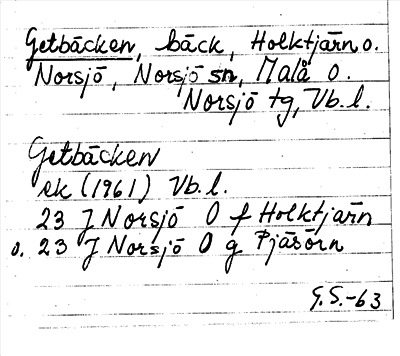 Getbäcken, bäck, Holktjärn o.
Norsjö, Norsjö sn, Malå o.
Norsjö tg, Vb. l.
Getbäcken
ek (1961) Vb. l.
23 J Norsjö O f Holktjärn
o. 23 J Norsjö O g Pjäsörn
G.S.-63